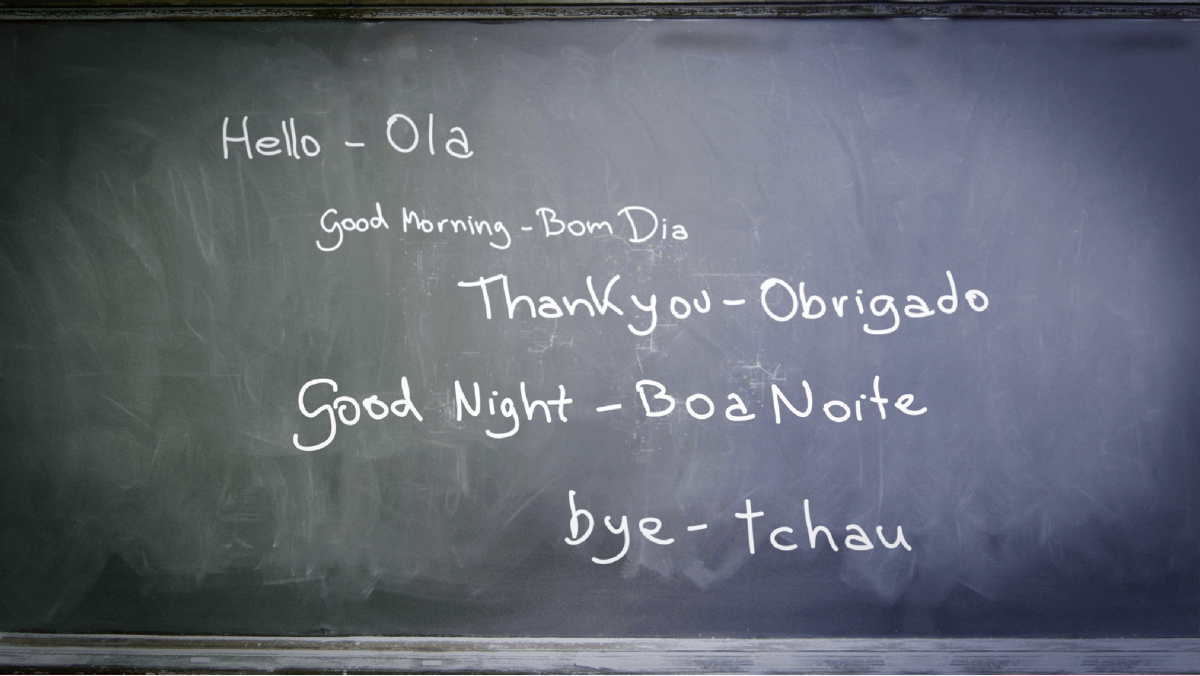 Hello - Ola
Good Morning - Bom Dia
Thank you - Obrigado
Good Night - Boa Noite
bye - tchau